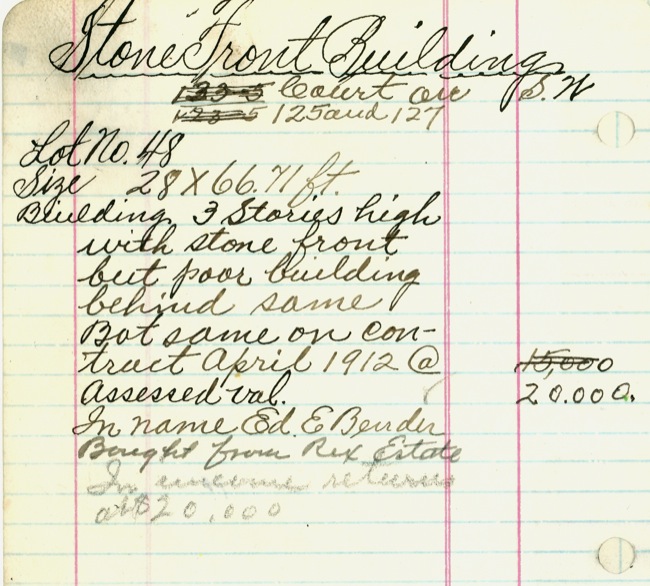 Stone Front Building
133-5 Court on S. W
123-5 125 and 127
Lot No. 48
Size 28 X 66.71 ft.
Building 3 Stories high
with stone front
but poor building
behind same
Bot same on con-
tract April 1912 @ 15,000
Assessed val. 20.000.
In name Ed. E Bender
Bought from Rex Estate
In income returns
at $20,000